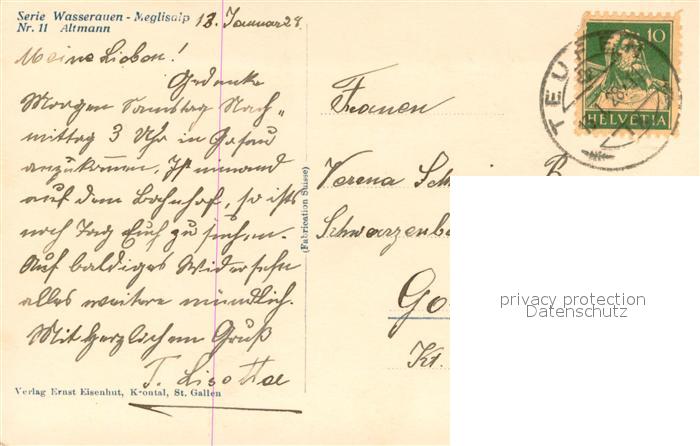 Serie Wasserauen - Meglisalp
Nr. 11 Altmann
13. Januar 28
Meine Lieben!
Gedenke
Morgen Samstag Nach„
mittag 3 Uhr in Gossau
anzukommen, Ist niemand
auf dem Bahnhof, so ists
noch Tag Euch zu suchen.
Auf baldiges Widersehn
alles weitere mündlich.
Mit herzlichem Gruß
T. Lisette
Verlag Ernst Eisenhut, Krontal, St. Gallen
(Fabrication Suisse)
10
HELVETIA
TEUFEN
Frauen
Verena Sch
Schwarzenb
Go
Kt.
privacy protection
Datenschutz